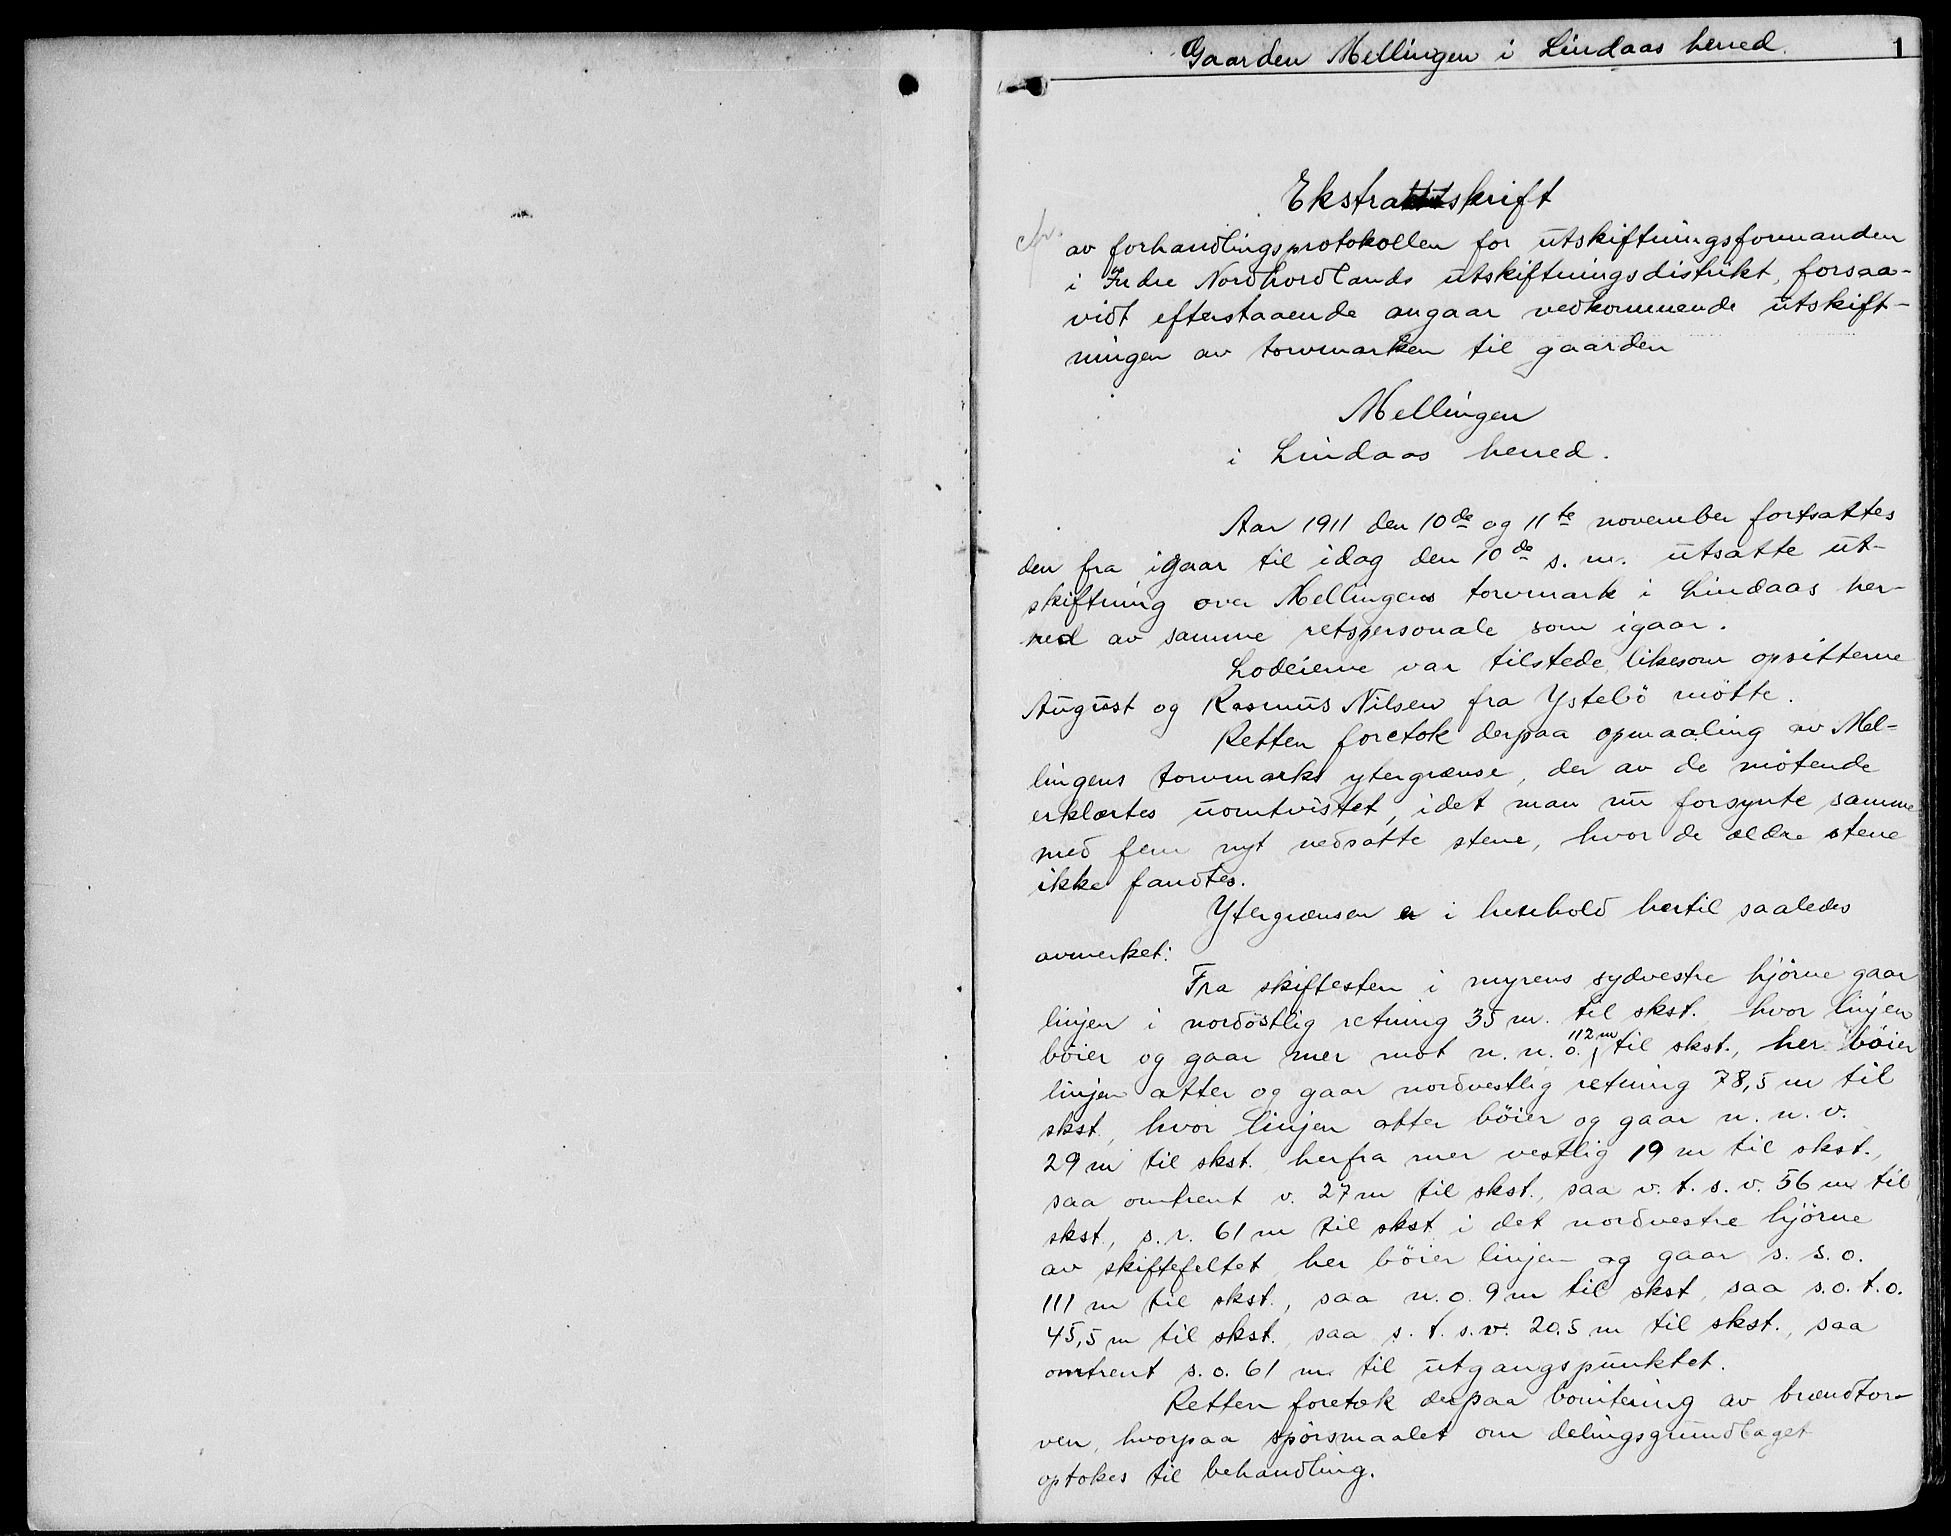 Gaarden Mellingen i Lindaas herred. 1
Ekstraktskrift
av forhandlingsprotokollen for utskiftningsformanden
i Indre Nordhordlands utskiftningsdistrikt, forsaa-
vidt efterstaaende angaar vedkommende utskift-
ningen av torvmarken til gaarden
Mellingen
i Lindaas herred.
Aar 1911 den 10de og 11te november fortsattes
den fra igaar til idag den 10de s. m. utsatte ut-
skiftning over Mellingens torvmark i Lindaas her-
red av samme retspersonale som igaar.
Lodeierne var tilstede, likesom opsitterne
August og Rasmus Nilsen fra Ystebö mötte.
Retten foretok derpaa opmaaling av Mel-
lingens torvmarks ytergrænse, der av de mötende
erklærtes uomtvistet, idet man nu forsynte samme
med fem nyt nedsatte stene, hvor de ældre stene
ikke fandtes.
Ytergrænsen er i henhold hertil saaledes
avmerket:
Fra skiftesten i myrens sydvestre hjörne gaar
linjen i nordöstlig retning 35 m. til skst. hvor linjen
böier og gaar mer mot n. n. o. 112 m til skst., her böier
linjen atter og gaar nordvestlig retning 78,5 m til
skst., hvor linjen atter böier og gaar n. n. v.
29 m til skst. herfra mer vestlig 19 m til skst.,
saa omtrent v. 27 m til skst., saa v. t. s. v. 56 m til
skst., s. v. 61 m til skst i det nordvestre hjörne
av skiftefeltet, her böier linjen og gaar s. s. o.
111 m til skst., saa n. o. 9 m til skst, saa s. o. t. o.
45,5 m til skst., saa s. t. s. v. 20.5 m til skst., saa
omtrent s. o. 61 m til utgangspunktet.
Retten foretok derpaa bonitering av brændtor-
ven, hvorpaa spörsmaalet om delingsgrundlaget
optokes til behandling.